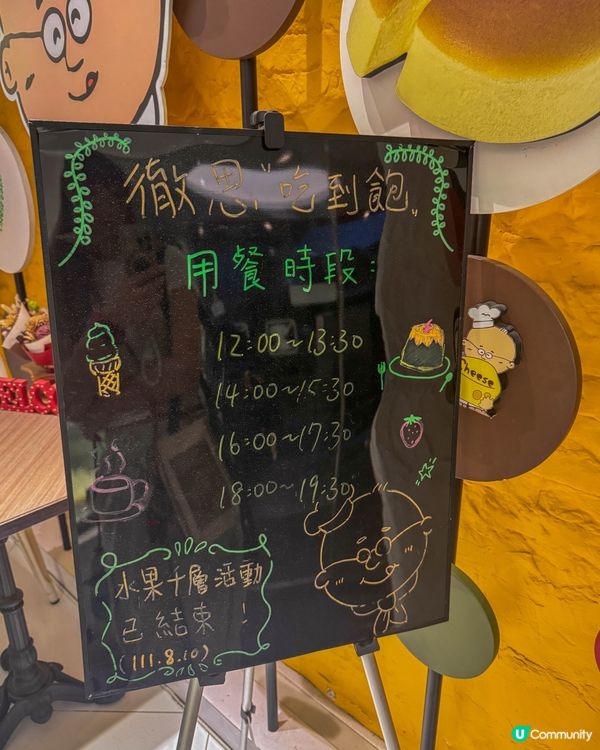 徹思"吃到飽"
用餐時段：
12:00~13:30
14:00~15:30
16:00~17:30
18:00~19:30
水果千層活動
已結束！
(111.8.10)
Cheese
U Community